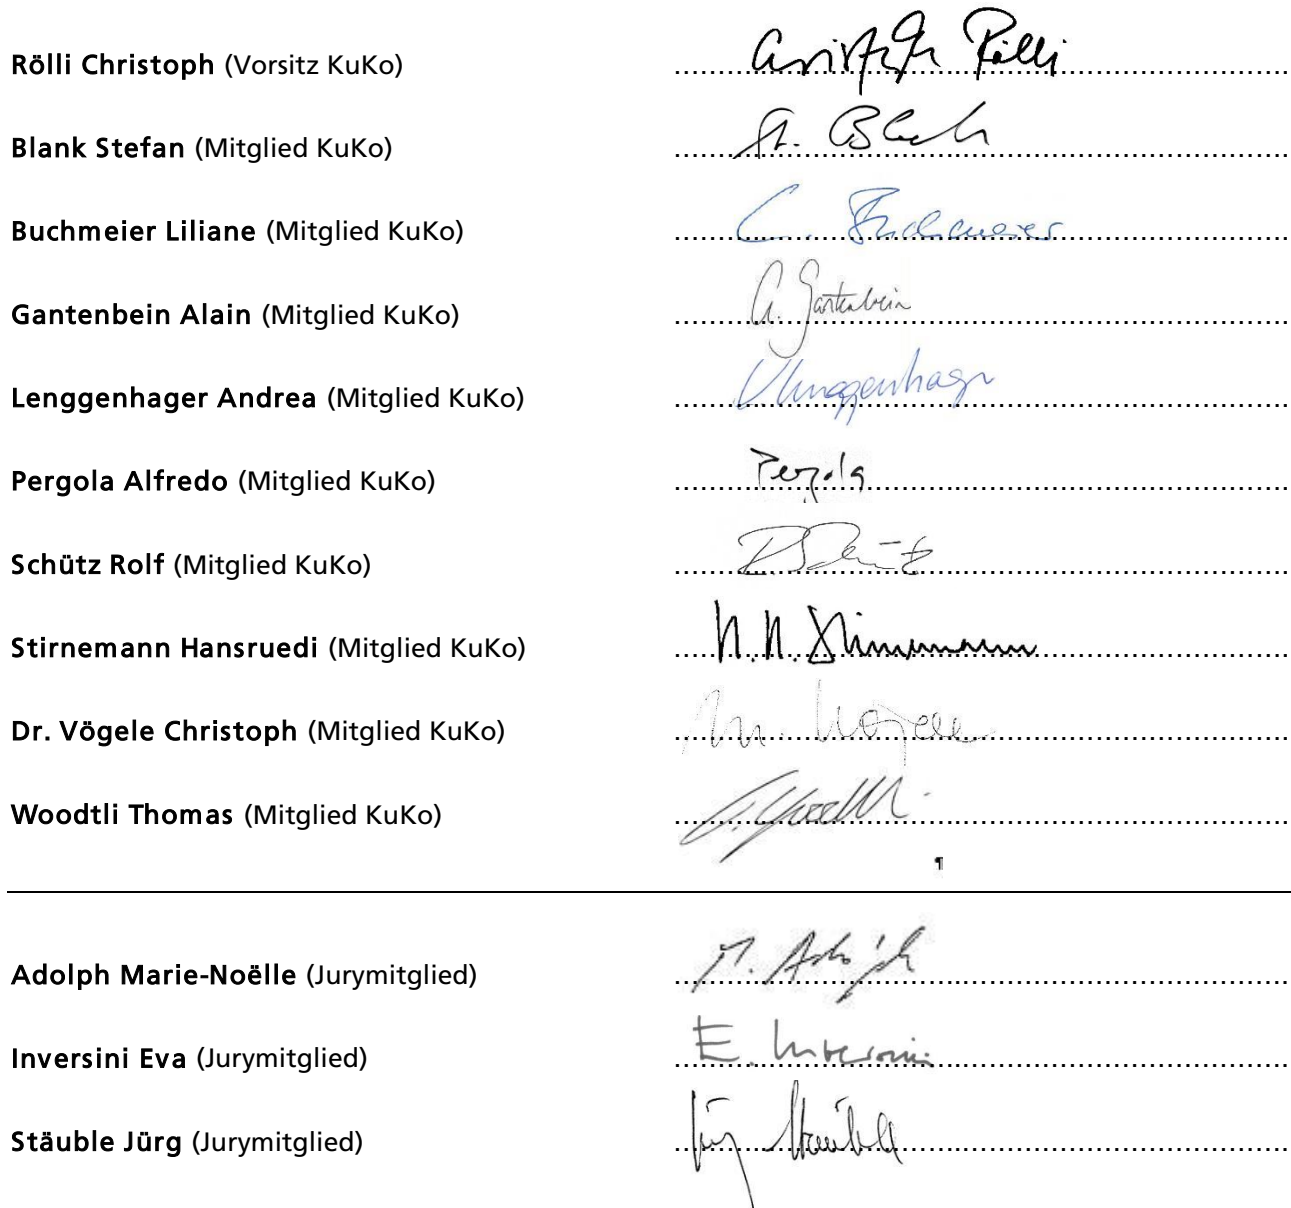 Rölli Christoph (Vorsitz KuKo) Christoph Rölli
Blank Stefan (Mitglied KuKo) St. Blank
Buchmeier Liliane (Mitglied KuKo) L. Buchmeier
Gantenbein Alain (Mitglied KuKo) A. Gantenbein
Lenggenhager Andrea (Mitglied KuKo)
Pergola Alfredo (Mitglied KuKo) Pergola
Schütz Rolf (Mitglied KuKo) R Schütz
Stirnemann Hansruedi (Mitglied KuKo) H. R. Stirnemann
Dr. Vögele Christoph (Mitglied KuKo)
Woodtli Thomas (Mitglied KuKo) T. Woodtli
¶
Adolph Marie-Noëlle (Jurymitglied) M. Adolph
Inversini Eva (Jurymitglied) E. Inversini
Stäuble Jürg (Jurymitglied) Jürg Stäuble